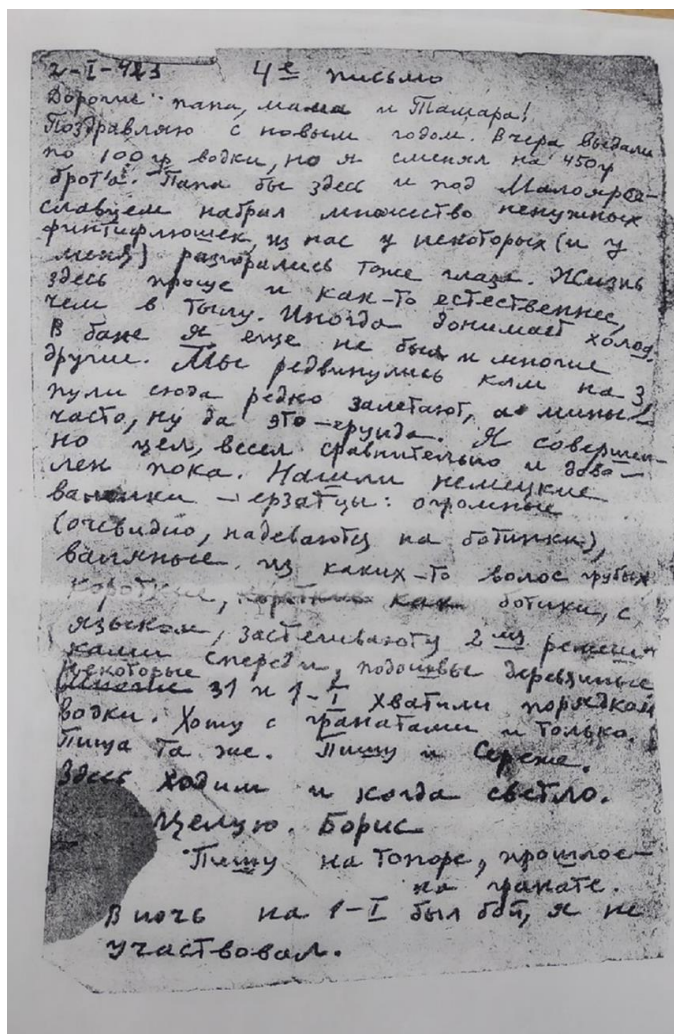 2-I-42г 4е письмо
Дорогие папа, мама и Тамара!
Поздравляю с новым годом. Вчера выдали
по 100 гр водки, но я сменял на 450 гр
брот'а. Папа бы здесь и под Малояро-
славцем набрал множество ненужных
финтифлюшек, из нас у некоторых (и у
меня) разгорались тоже глаза. Жизнь
здесь проще и как-то естественнее,
чем в тылу. Иногда донимает холод.
В бане я еще не был и многие
другие. Мы подвинулись клм на 3,
пули сюда редко залетают, а мины –
часто, ну да это – ерунда. Я совершен-
но цел, весел сравнительно и дово-
лен пока. Нашли немецкие
валенки – эрзатцы: огромные
(очевидно, надеваются на ботинки),
валяные из каких-то волос грубых
Короткие, как ботики, с
языком, застегиваются 2мя ремеш-
ками спереди, подошвы деревянные
Некоторые 31 и 1-I хватили порядком
водки. Хожу с гранатами и только.
Пища та же. Пишу и Сереже.
Здесь ходим и когда светло.
Целую. Борис
Пишу на топоре, прошлое –
на гранате.
В ночь на 1-I был бой, я не
участвовал.